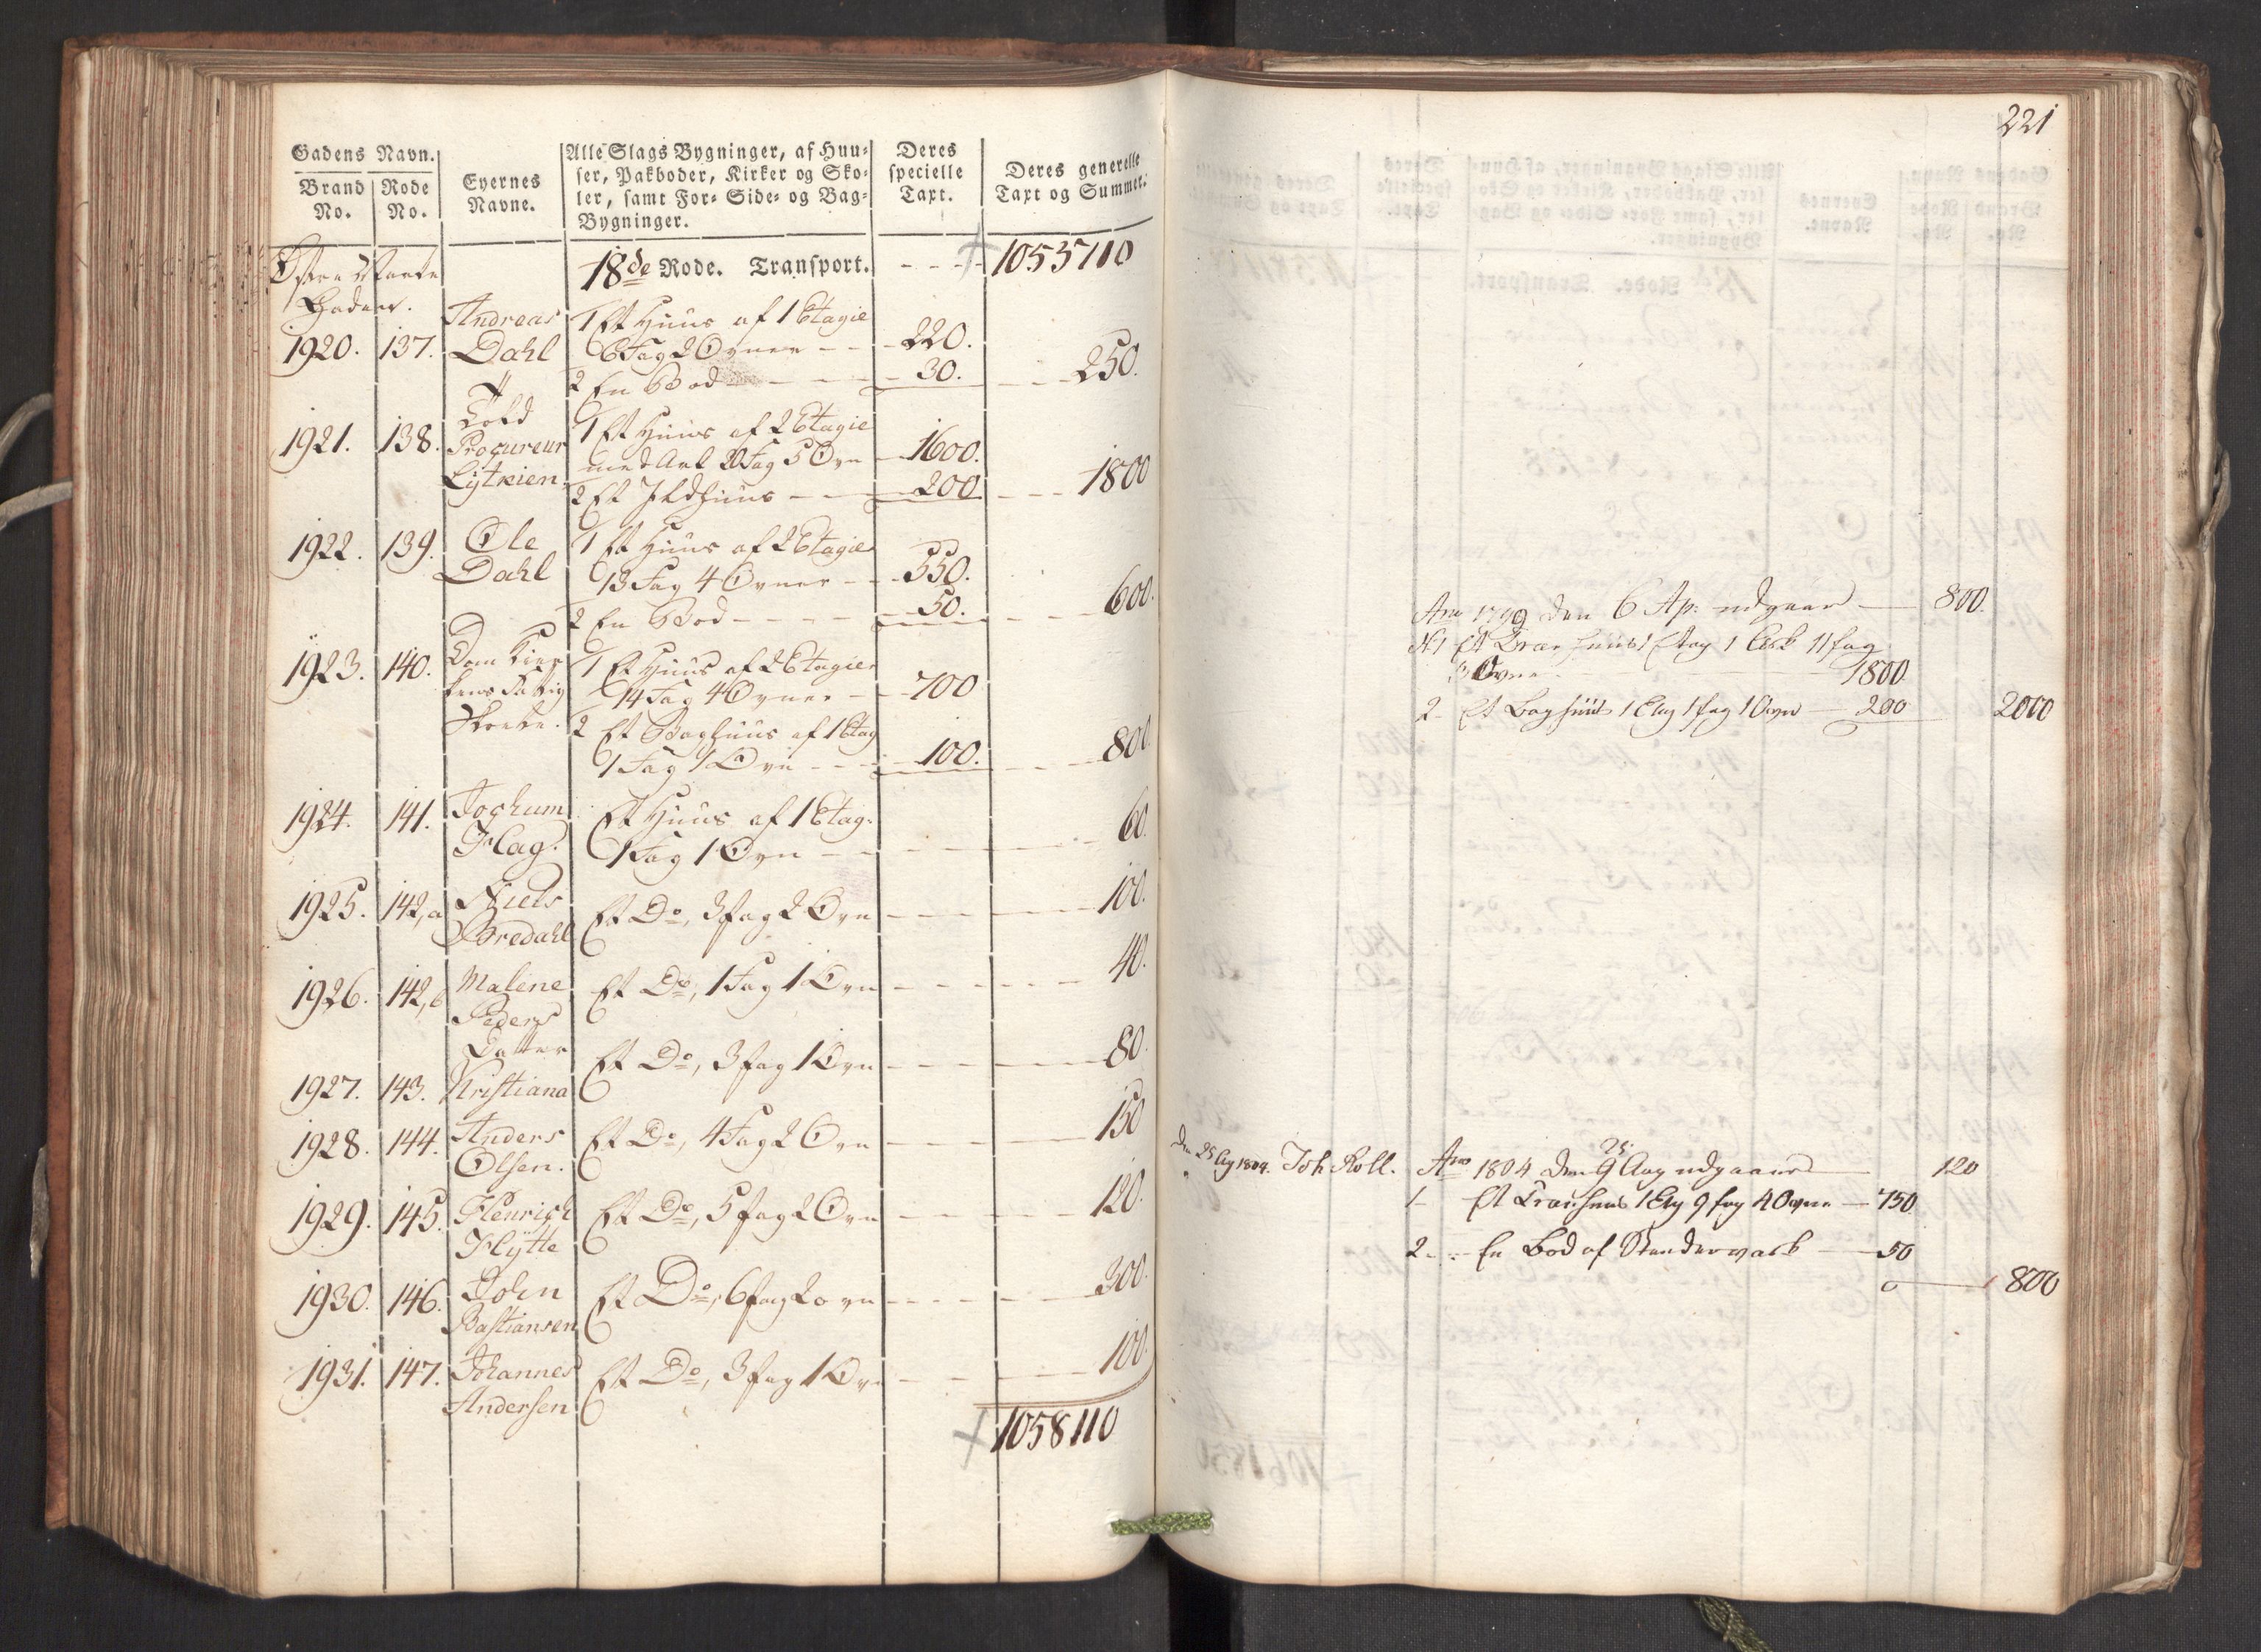 Gadens Navn.
Brand No.
Rode No.
Eyernes Navne.
Alle Slags Bygninger, af Huu-
ser, Pakboder, Kirker og Sko-
ler, samt For- Side- og Bag-
Bygninger.
Deres specielle Taxt.
Deres generelle Taxt og Summer.
18de Rode. Transport. - - - 1053710
Gader.
Andreas 1 Et Huus af 1 Etagie
1920. 137. Dahl 6 Fag 2 Ovner - - 220.
2 En Bod - - - 30. - - 250.
1921. 138. Procureur 1 Et Huus af 2 Etagie
Lytkien. 20 Fag 5 Ovn - 1600.
2 Et Ildhuus - - 200 - - - 1800
1922. 139. Ole 1 Et Huus af 2 Etagie
Dahl 13 Fag 4 Ovner - - 550.
2 En Bod - - - - 50. - - 600.
1923. 140. Dom Kir- 1 Et Huus af 2 Etagier
kens Fattig 14 Fag 4 Ovner - - 700
2 Et Baghuus af 1 Etag
1 Fag 1 Ovn - - - 100. - - 800.
1924. 141. Jochum Et Huus af 1 Etag.
Flag. 1 Fag 1 Ovn - - - - 60.
1925. 142,a Niels Et Do, 3 fag 2 Ovn - - - 100.
Bredahl
1926. 142,b Malene Et Do, 1 Fag 1 Ovn - - - 40.
Peders
Datter
1927. 143. Kristiana Et Do, 3 fag 1 Ovn - - - 80.
1928. 144. Anders Et Do, 4 Fag 2 Ovn - - - 150
Olsen.
1929. 145. Henrich Et Do, 5 fag 2 Ovn - - - 120.
Flytte
1930. 146. John Et Do, 6 fag 2 ovn - - - 300.
Bastiansen
1931. 147. Johannes Et Do, 3 fag 1 Ovn - - - 100.
Andersen
1058110
221
Ano 1799 den 6 Ap: udgaar - 800.
No 1 Et Træehuus 1 Etag 1 Ark 11 fag
Ovne - 1800.
2 - Et Baghuus 1 Etag 1 fag 1 Ovn - 200 2000
Den 25 Ag 1804. Joh Roll. Ano 1804 den 9 Aug udgaaer - 120
25
1 - Et Træehuus 1 Etg 9 fag 4 Ovne - 750
2 - En Bod af Stenderværk - 50
800